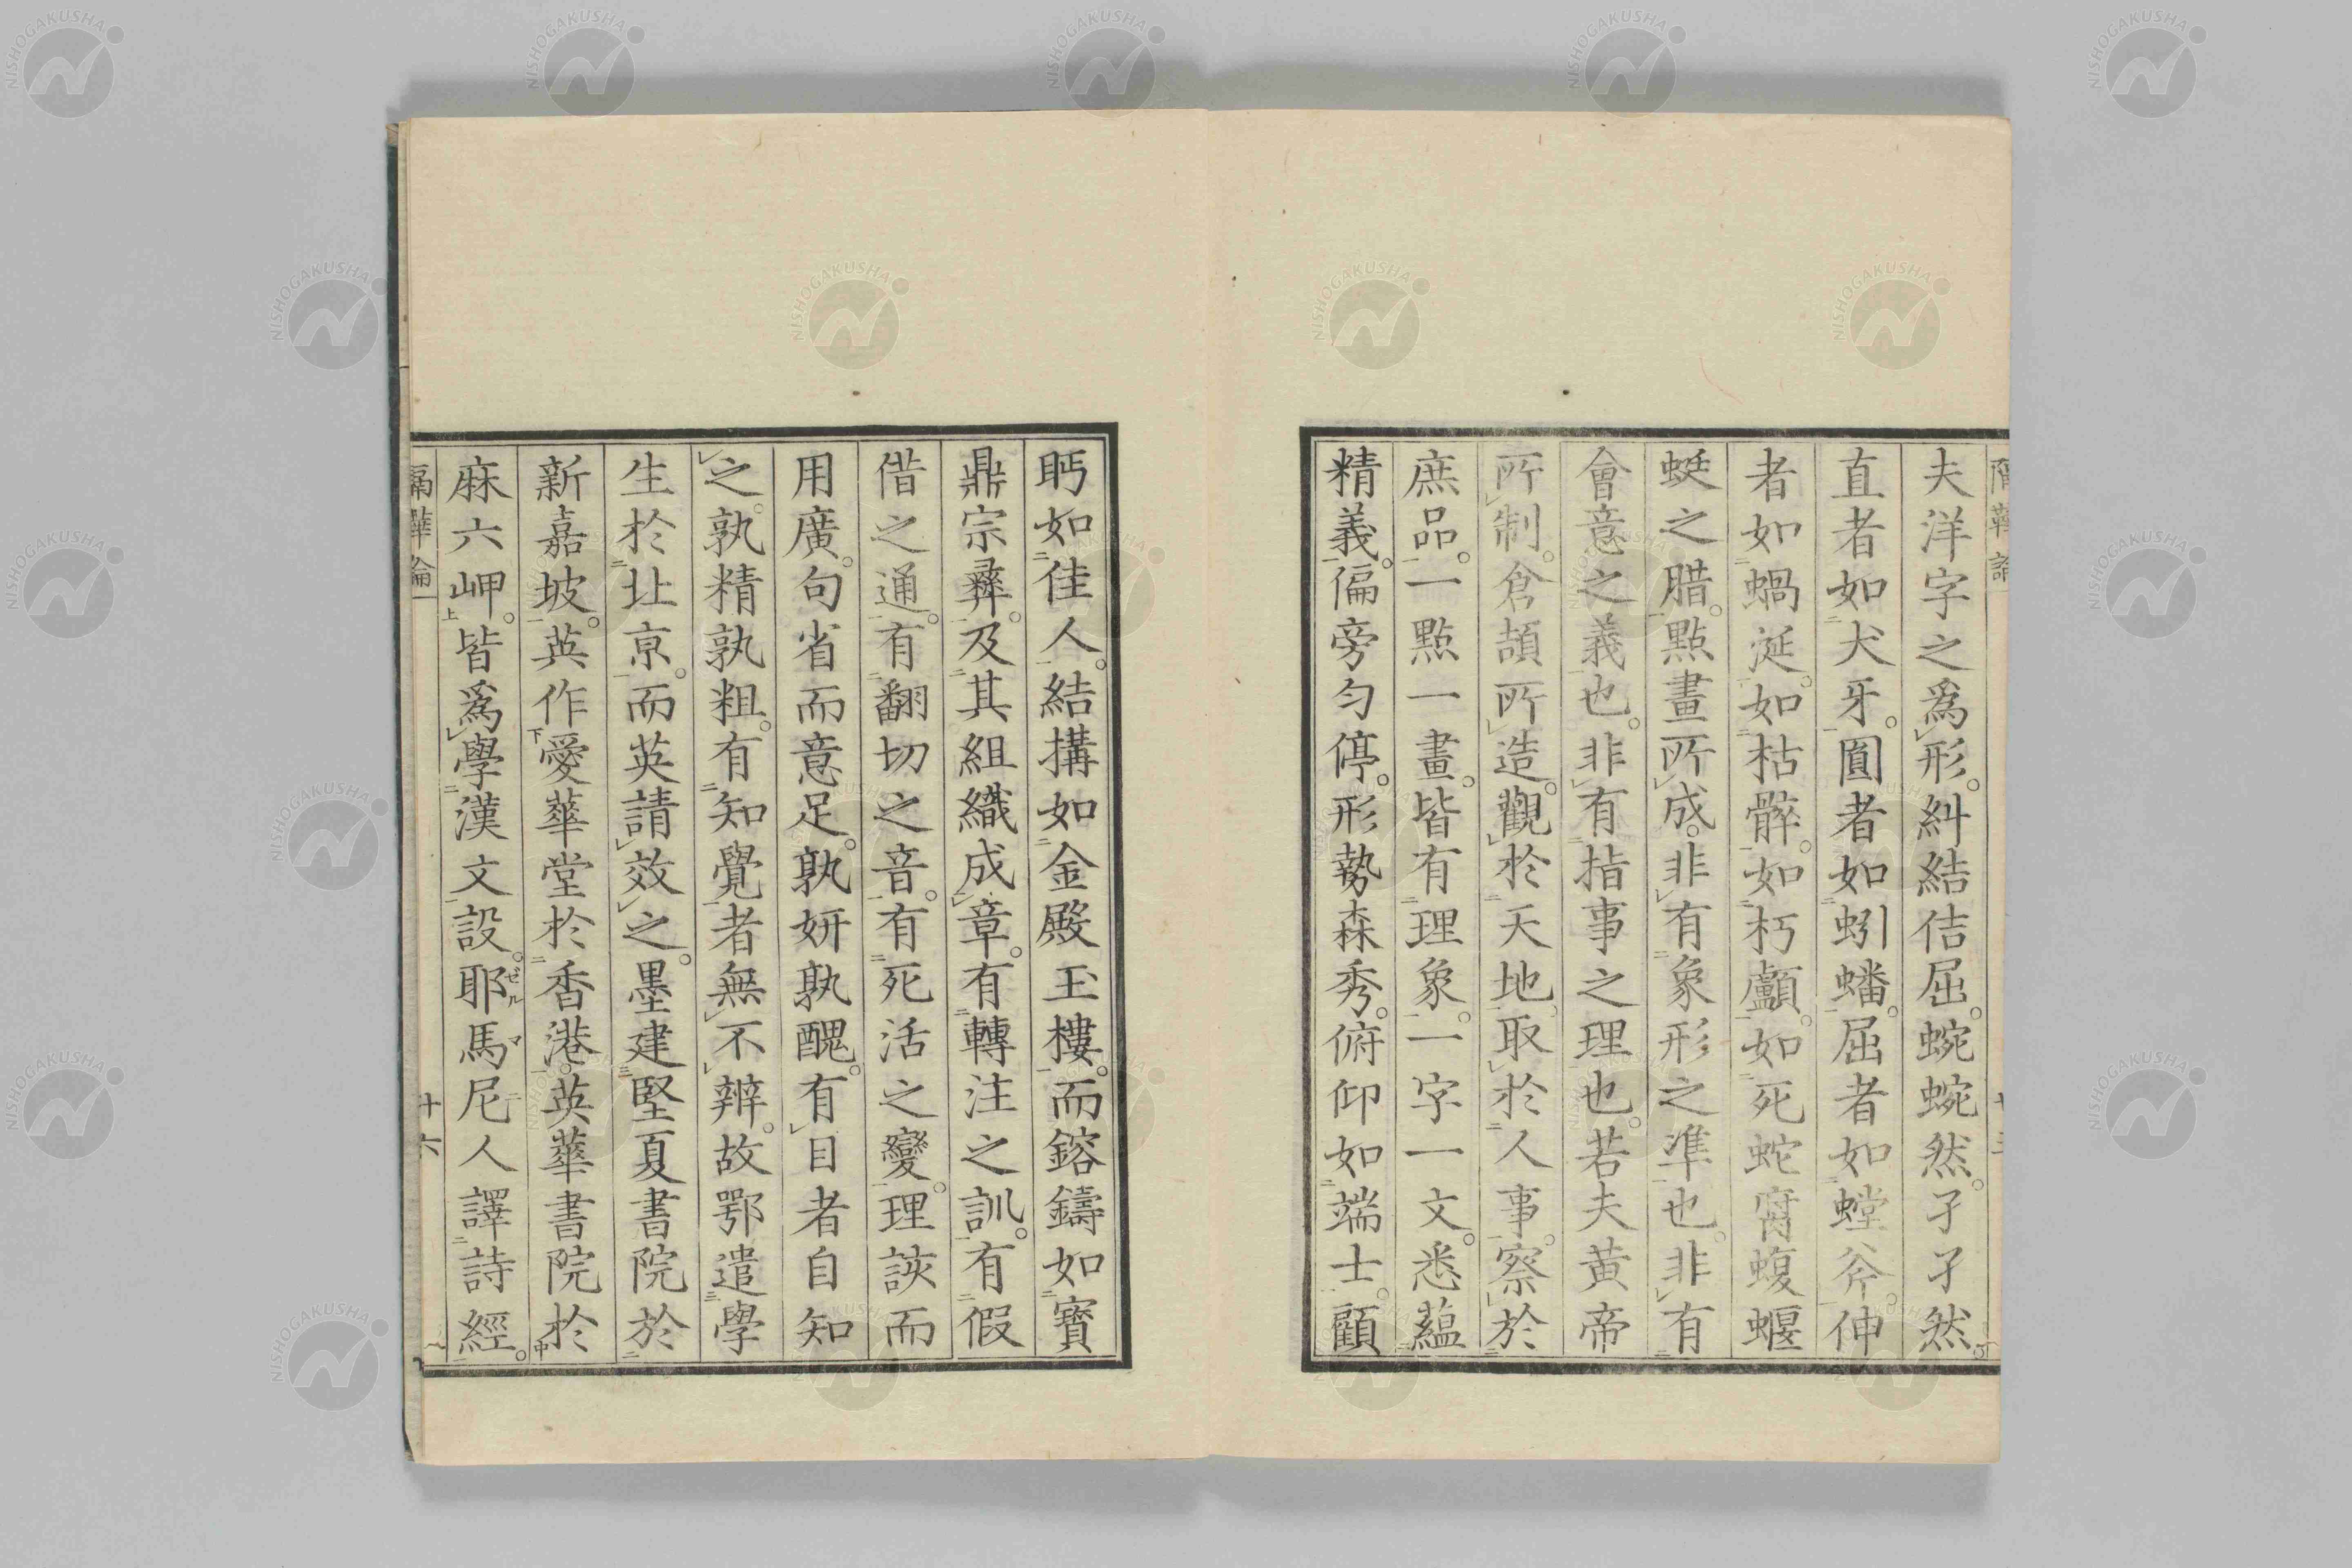 夫洋字之爲形。糾結佶屈。蜿蜿然。孑孑然。
直者如犬牙。圓者如蚓蟠。屈者如螳斧。伸
者如蝸涎。如枯髂。如朽顱。如死蛇腐蝮蝘
蜓之腊。點畫所成。非有象形之準也。非有
會意之義也。非有指事之理也。若夫黄帝
所制。倉頡所造。觀於天地、取於人事。察於
庶品。一點一畫。皆有理象。一字一文。悉蘊
精義。偏旁匀停。形勢森秀。俯仰如端士。顧
眄如佳人。結搆如金殿玉樓。而鎔鑄如寳
鼎宗彝。及其組織成章。有轉注之訓。有假
借之通。有翻切之音。有死活之變。理該而
用廣。句省而意足。孰妍孰醜。有目者自知
之。孰精孰粗。有知覺者無不辨。故鄂遣學
生於北京。而英請效之。墨建堅夏書院於
新嘉坡。英作愛華堂於香港。英華書院於
麻六岬。皆爲學漢文設。耶馬尼人譯詩經。
ゼルマニ
隔鞾論
十六
NISHOGAKUSHA